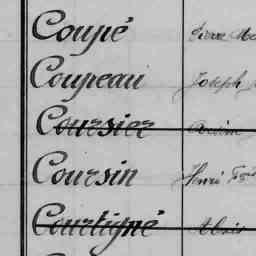 Coupé Pierre
Coupeau Joseph
Coursier
Coursin Henri
Courtigné Alexis